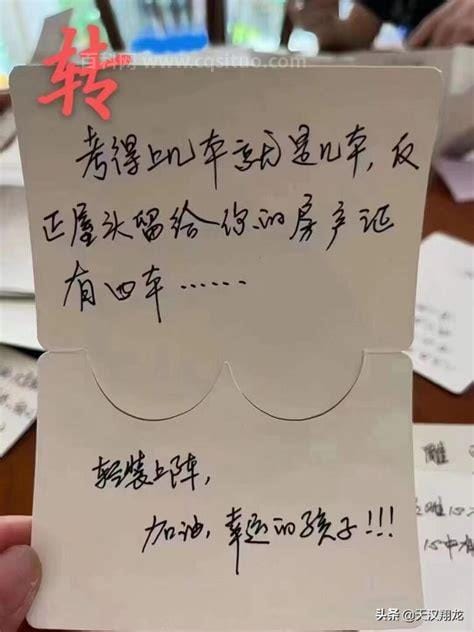 转
百科网 www.cqsituo.com
考得上几本就是几本,反
正屋头留给你的房产证
有四本……
轻装上阵,
加油,幸运的孩子!!!
雕
心中有
头条 @天汉翔龙